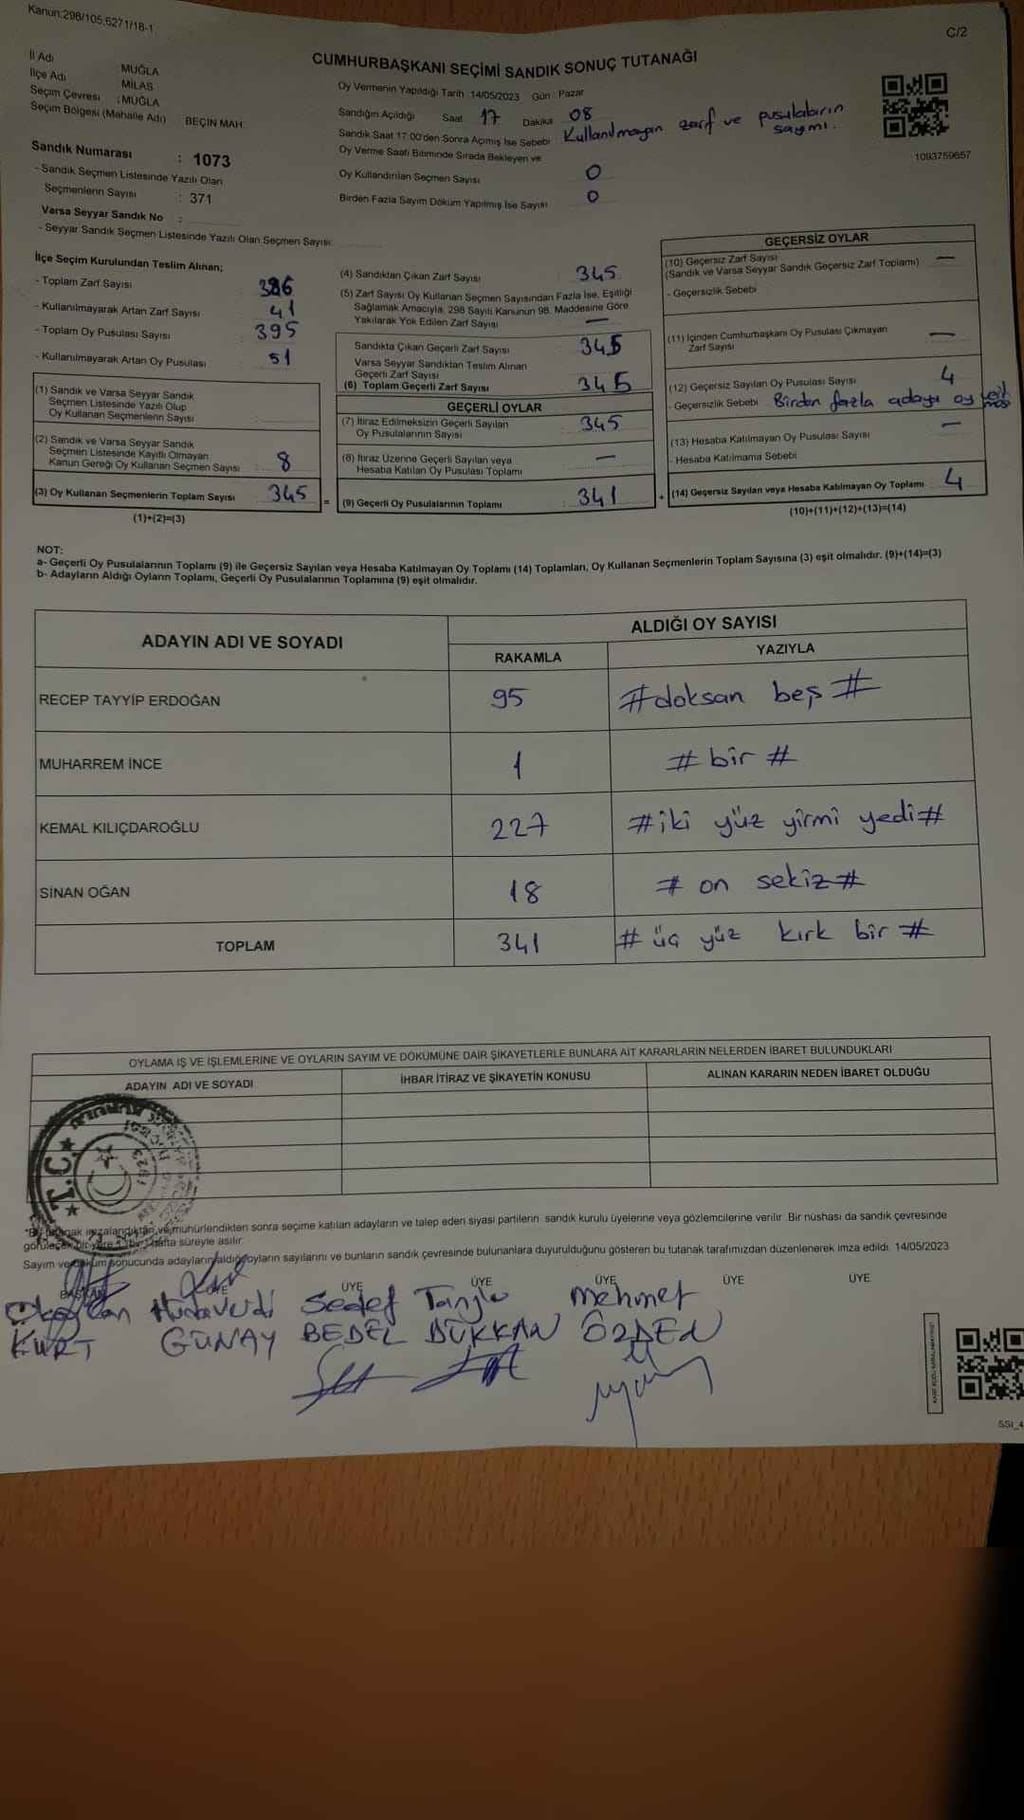 Kanun:298/105,5271/18-1
C/2
CUMHURBAŞKANI SEÇİMİ SANDIK SONUÇ TUTANAĞI
İl Adı MUĞLA
İlçe Adı MİLAS
Seçim Çevresi : MUĞLA
Seçim Bölgesi (Mahalle Adı) BEÇİN MAH.
Sandık Numarası : 1073
- Sandık Seçmen Listesinde Yazılı Olan
Seçmenlerin Sayısı : 371
Varsa Seyyar Sandık No :
- Seyyar Sandık Seçmen Listesinde Yazılı Olan Seçmen Sayısı:
Oy Vermenin Yapıldığı Tarih :14/05/2023 Gün : Pazar
Sandığın Açıldığı Saat 17 Dakika 08
Sandık Saat 17.00'den Sonra Açılmış İse Sebebi Kullanılmayan zarf ve pusulaların
sayımı.
Oy Verme Saati Bitiminde Sırada Bekleyen ve
Oy Kullandırılan Seçmen Sayısı 0
Birden Fazla Sayım Döküm Yapılmış İse Sayısı 0
1093759657
İlçe Seçim Kurulundan Teslim Alınan;
- Toplam Zarf Sayısı 386
- Kullanılmayarak Artan Zarf Sayısı 41
- Toplam Oy Pusulası Sayısı 395
- Kullanılmayarak Artan Oy Pusulası 51
(1) Sandık ve Varsa Seyyar Sandık
Seçmen Listesinde Yazılı Olup
Oy Kullanan Seçmenlerin Sayısı
(2) Sandık ve Varsa Seyyar Sandık
Seçmen Listesinde Kayıtlı Olmayan
Kanun Gereği Oy Kullanan Seçmen Sayısı 8
(3) Oy Kullanan Seçmenlerin Toplam Sayısı 345
(1)+(2)=(3)
(4) Sandıktan Çıkan Zarf Sayısı 345
(5) Zarf Sayısı Oy Kullanan Seçmen Sayısından Fazla İse, Eşitliği
Sağlamak Amacıyla, 298 Sayılı Kanunun 98. Maddesine Göre
Yakılarak Yok Edilen Zarf Sayısı —
Sandıkta Çıkan Geçerli Zarf Sayısı 345
Varsa Seyyar Sandıktan Teslim Alınan
Geçerli Zarf Sayısı
(6) Toplam Geçerli Zarf Sayısı 345
GEÇERLİ OYLAR
(7) İtiraz Edilmeksizin Geçerli Sayılan
Oy Pusulalarının Sayısı 345
(8) İtiraz Üzerine Geçerli Sayılan veya
Hesaba Katılan Oy Pusulası Toplamı —
= (9) Geçerli Oy Pusulalarının Toplamı 341
GEÇERSİZ OYLAR
(10) Geçersiz Zarf Sayısı —
(Sandık ve Varsa Seyyar Sandık Geçersiz Zarf Toplamı)
- Geçersizlik Sebebi
(11) İçinden Cumhurbaşkanı Oy Pusulası Çıkmayan —
Zarf Sayısı
(12) Geçersiz Sayılan Oy Pusulası Sayısı 4
- Geçersizlik Sebebi Birden fazla adaya oy
(13) Hesaba Katılmayan Oy Pusulası Sayısı —
- Hesaba Katılmama Sebebi
+ (14) Geçersiz Sayılan veya Hesaba Katılmayan Oy Toplamı 4
(10)+(11)+(12)+(13)=(14)
NOT:
a- Geçerli Oy Pusulalarının Toplamı (9) ile Geçersiz Sayılan veya Hesaba Katılmayan Oy Toplamı (14) Toplamları, Oy Kullanan Seçmenlerin Toplam Sayısına (3) eşit olmalıdır. (9)+(14)=(3)
b- Adayların Aldığı Oyların Toplamı, Geçerli Oy Pusulalarının Toplamına (9) eşit olmalıdır.
ADAYIN ADI VE SOYADI
ALDIĞI OY SAYISI
RAKAMLA YAZIYLA
RECEP TAYYİP ERDOĞAN 95 #doksan beş#
MUHARREM İNCE 1 #bir#
KEMAL KILIÇDAROĞLU 227 #iki yüz yirmi yedi#
SİNAN OĞAN 18 #on sekiz#
TOPLAM 341 #üç yüz kırk bir#
OYLAMA İŞ VE İŞLEMLERİNE VE OYLARIN SAYIM VE DÖKÜMÜNE DAİR ŞİKAYETLERLE BUNLARA AİT KARARLARIN NELERDEN İBARET BULUNDUKLARI
ADAYIN ADI VE SOYADI İHBAR İTİRAZ VE ŞİKAYETİN KONUSU ALINAN KARARIN NEDEN İBARET OLDUĞU
T.C.
imzalandıktan ve mühürlendikten sonra seçime katılan adayların ve talep eden siyasi partilerin sandık kurulu üyelerine veya gözlemcilerine verilir. Bir nüshası da sandık çevresinde
hafta süreyle asılır.
Sayım ve döküm sonucunda adayların aldığı oyların sayılarını ve bunların sandık çevresinde bulunanlara duyurulduğunu gösteren bu tutanak tarafımızdan düzenlenerek imza edildi. 14/05/2023
BAŞKAN ÜYE ÜYE ÜYE ÜYE ÜYE ÜYE
Hüdaverdi Sedef Mehmet
KURT GÜNAY BEDEL DÜKKAN ÖZDEN
SSI_4